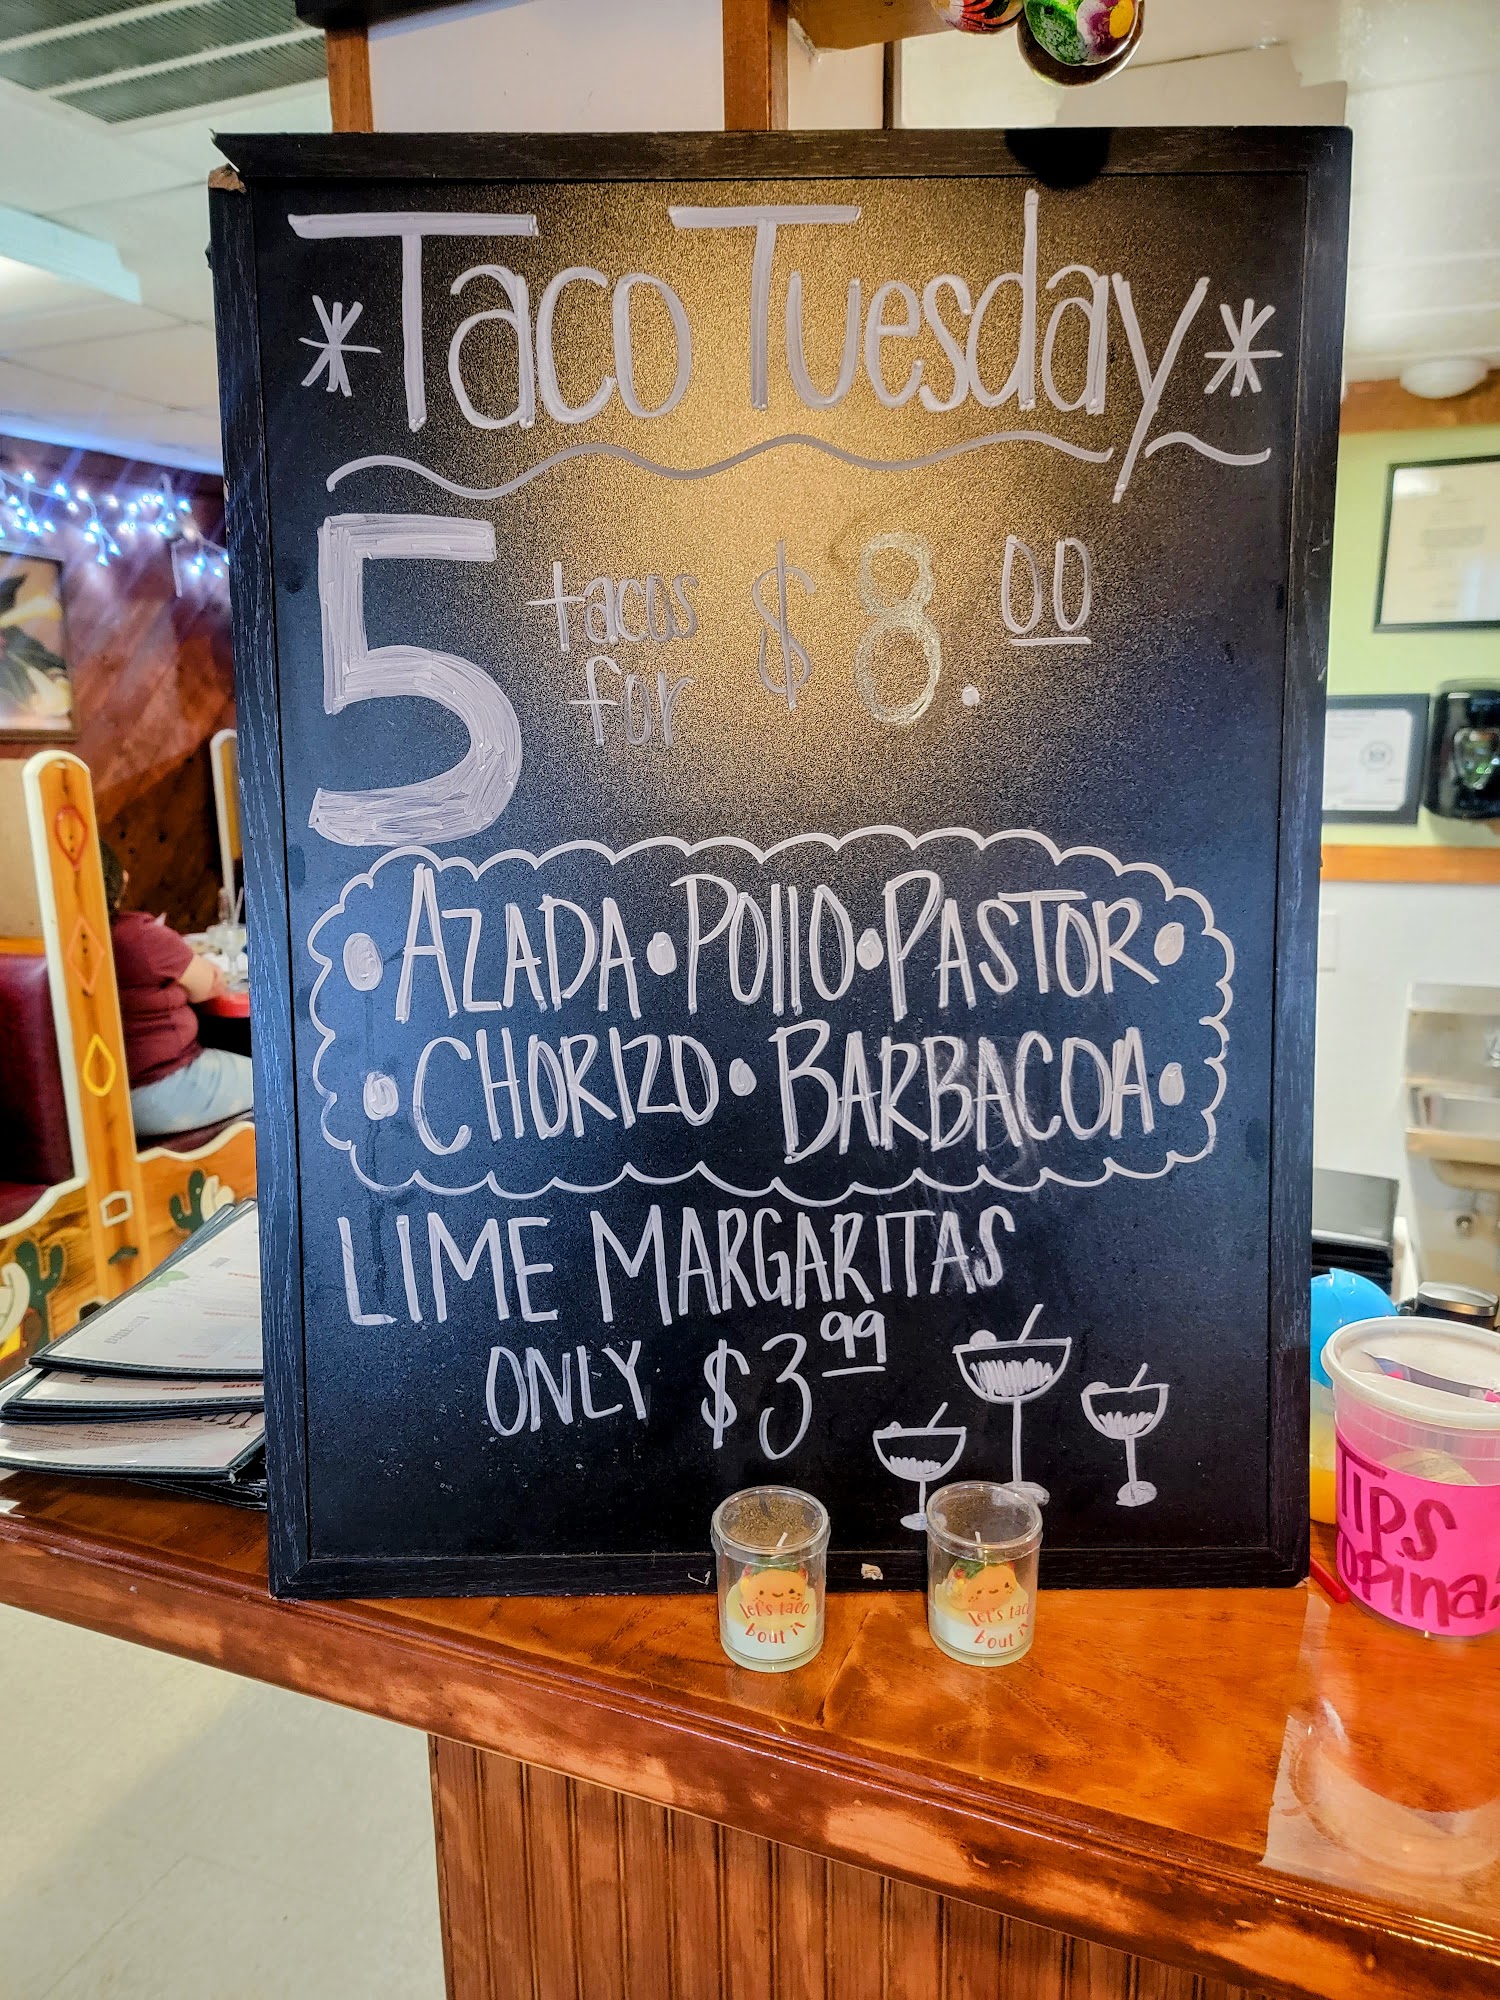 *Taco Tuesday*
5 tacos for $8.00
AZADA • POllO • PASTOR
• CHORIZO • BARBACOA •
LIME MARGARITAS
ONLY $3.99
let's taco
bout it
let's taco
bout it
TIPS